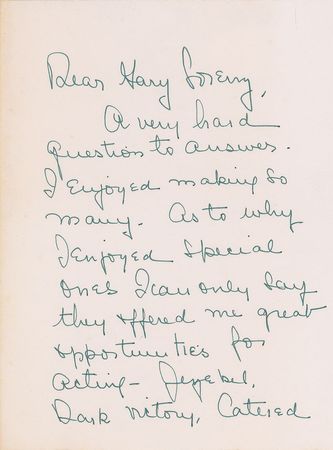 Dear Gary
A very hard
question to answer.
I enjoyed making so
many. As to why
I enjoyed special
ones I can only say
they offered me great
opportunities for
acting - Jezebel,
Dark Victory, Catered